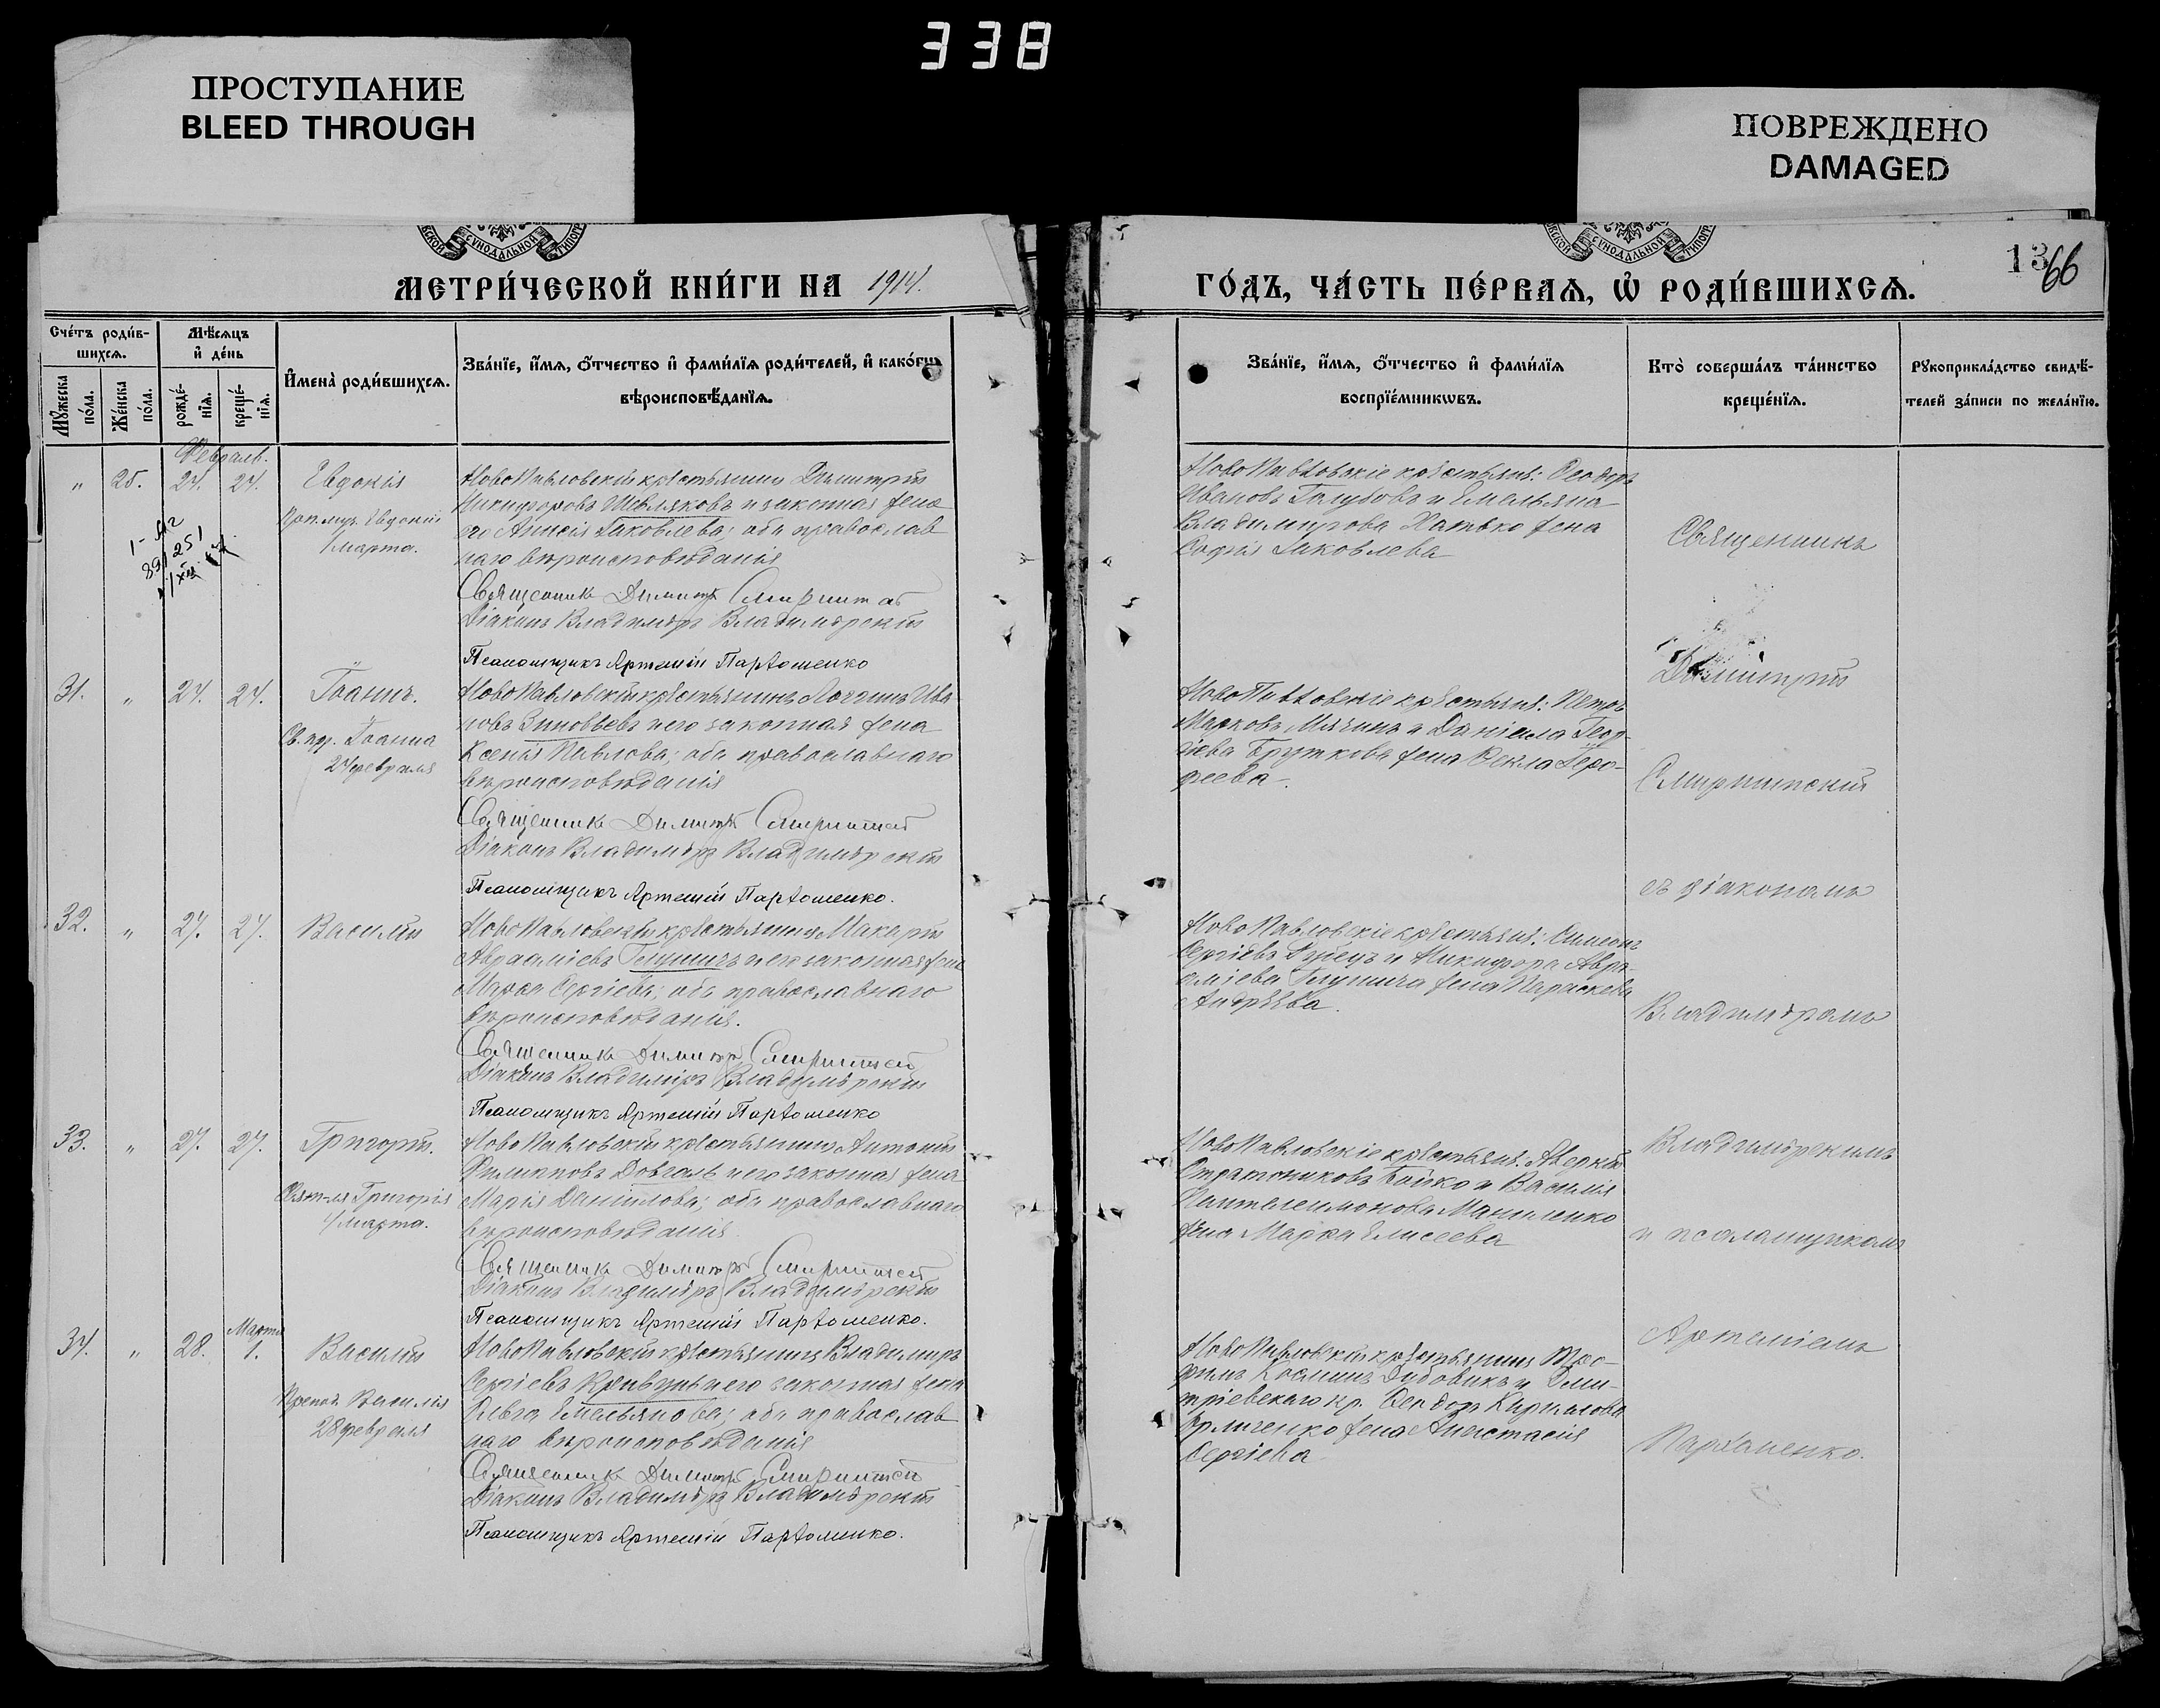 338
ПРОСТУПАНИЕ
BLEED THROUGH
ПОВРЕЖДЕНО
DAMAGED
СѴНОДАЛЬНОЙ
СѴНОДАЛЬНОЙ
МЕТРИ́ЧЕСКОЙ КНИ́ГИ НА 1914.
ГО́ДЪ, ЧА́СТЬ ПЕ́РВАѦ, Ѡ҆ РОДИ́ВШИХСѦ.
13
66
Сче́тъ роди́в-
шихсѧ.
Мѣ́сѧцъ
и҆ де́нь
Мꙋ́жеска
по́ла.
Же́нска
по́ла.
рожде́-
нїѧ.
креще́-
нїѧ.
И҆мена̀ роди́вшихсѧ.
Зва́нїе, и҆́мѧ, ѻ҆́тчество и҆ фами́лїѧ роди́телей, и҆ како́гѡ
вѣроисповѣ́данїѧ.
Зва́нїе, и҆́мѧ, ѻ҆́тчество и҆ фами́лїѧ
воспрїе́мникѡвъ.
Кто̀ соверша́лъ та́инство
креще́нїѧ.
Рꙋкоприкла́дство свидѣ́-
телей за́писи по жела́нїю.
Февраль.
" 25. 24. 24. Евдокія
Преп.муч. Евдокіи
1 марта.
НовоПавловскій крестьянинъ Димитрій
Никифоровъ Шевляковъ и законная жена
его Анисія Іаковлева; оба православ
наго вѣроисповѣданія
Священникъ Димитрій Смирнитскій
Діаконъ Владиміръ Владимірскій
Псаломщикъ Артемій Пархоменко
НовоПавловскіе крестьяне: Ѳеодоръ
Ивановъ Голубовъ и Емельяна
Владимирова Хатько жена
Софія Іаковлева
31. " 24. 24. Іоаннъ.
Св. пр. Іоанна
24 февраля
НовоПавловскій крестьянинъ Логгинъ Ива
новъ Зиновьевъ и его законная жена
Ксенія Павлова; оба православнаго
вѣроисповѣданія
Священникъ Димитрій Смирнитскій
Діаконъ Владиміръ Владимірскій
Псаломщикъ Артемій Пархоменко.
НовоПавловскіе крестьяне: Петръ
Марковъ Мячинъ и Даніила Геор-
гіева Бруткова жена Ѳекла Іеро-
феева.
32. " 27. 27. Василій
НовоПавловскій крестьянинъ Макарій
Авраамiевъ Глушичъ и его законная жена
Марѳа Сергіева; оба православнаго
вѣроисповѣданія.
Священникъ Димитрій Смирнитскій
Діаконъ Владиміръ Владимірскій
Псаломщикъ Артемій Пархоменко
НовоПавловскіе крестьяне: Симеонъ
Сергіевъ и Никифора Авра-
аміева Глушича жена Параскева
Андрѣева.
33. " 27. 27. Григорій.
Святля Григорія
4 марта.
НовоПавловскій крестьянинъ Антоній
Филиповъ Довгаль и его законная жена
Марія Даніилова; оба православнаго
вѣроисповѣданія.
Священникъ Димитрій Смирнитскій
Діаконъ Владиміръ Владимірскій
Псаломщикъ Артемій Пархоменко.
НовоПавловскіе крестьяне: Аверкій
Стратониковъ Бойко и Василія
Пантелеимонова Маниленко
жена Марѳа Елисеева
Марта
34. " 28. 1. Василій
Препод. Василія
28 февраля
НовоПавловскій крестьянинъ Владимиръ
Сергіевъ Кривунь и его законная жена
Ольга Емельянова; оба православ
наго вѣроисповѣданія
Священникъ Димитрій Смирнитскій
Діаконъ Владиміръ Владимірскій
Псаломщикъ Артемій Пархоменко.
НовоПавловскій крестьянинъ Тро-
фимъ Косминъ Дубовикъ и Дми-
тріевскаго кр. Ѳеодора Кирилова
жена Анастасія
Сергіева
Священникъ
Димитрій
Смирнитскій
съ діакономъ
Владиміромъ
Владимірскимъ
и псаломщикомъ
Артеміемъ
Пархоменко.